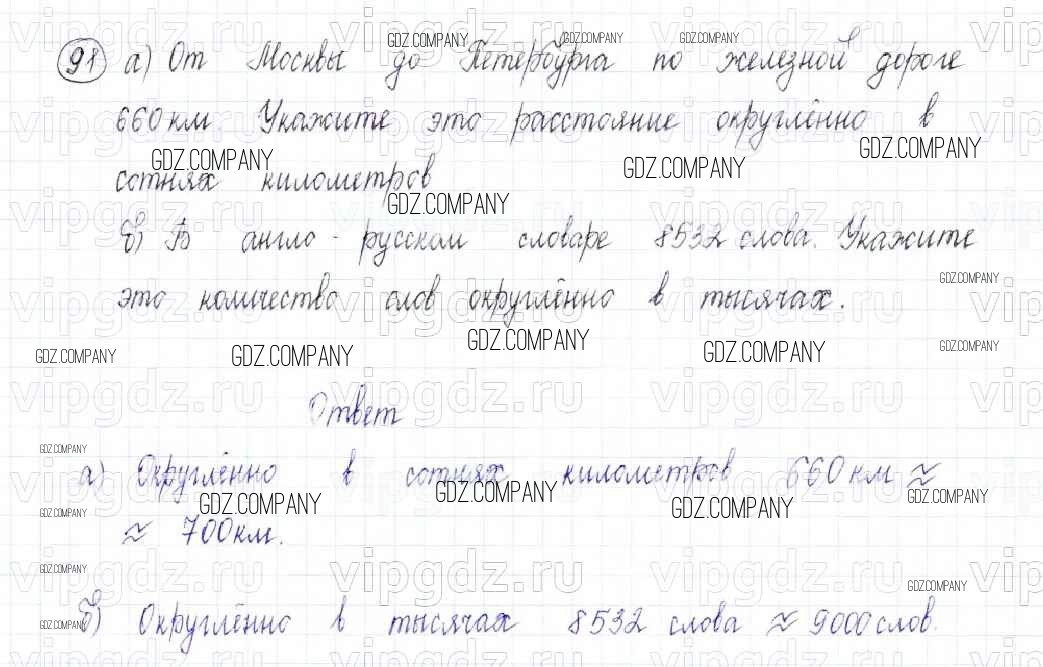 98 а) От Москвы до Петербурга по железной дороге
660 км. Укажите это расстояние округлённо в
сотнях километров
б) В англо-русском словаре 8532 слова. Укажите
это количество слов округлённо в тысячах.
Ответ
а) Округлённо в сотнях километров 660 км ≈
≈ 700 км.
б) Округлённо в тысячах 8532 слова ≈ 9000 слов.
GDZ.COMPANY
vipgdz.ru